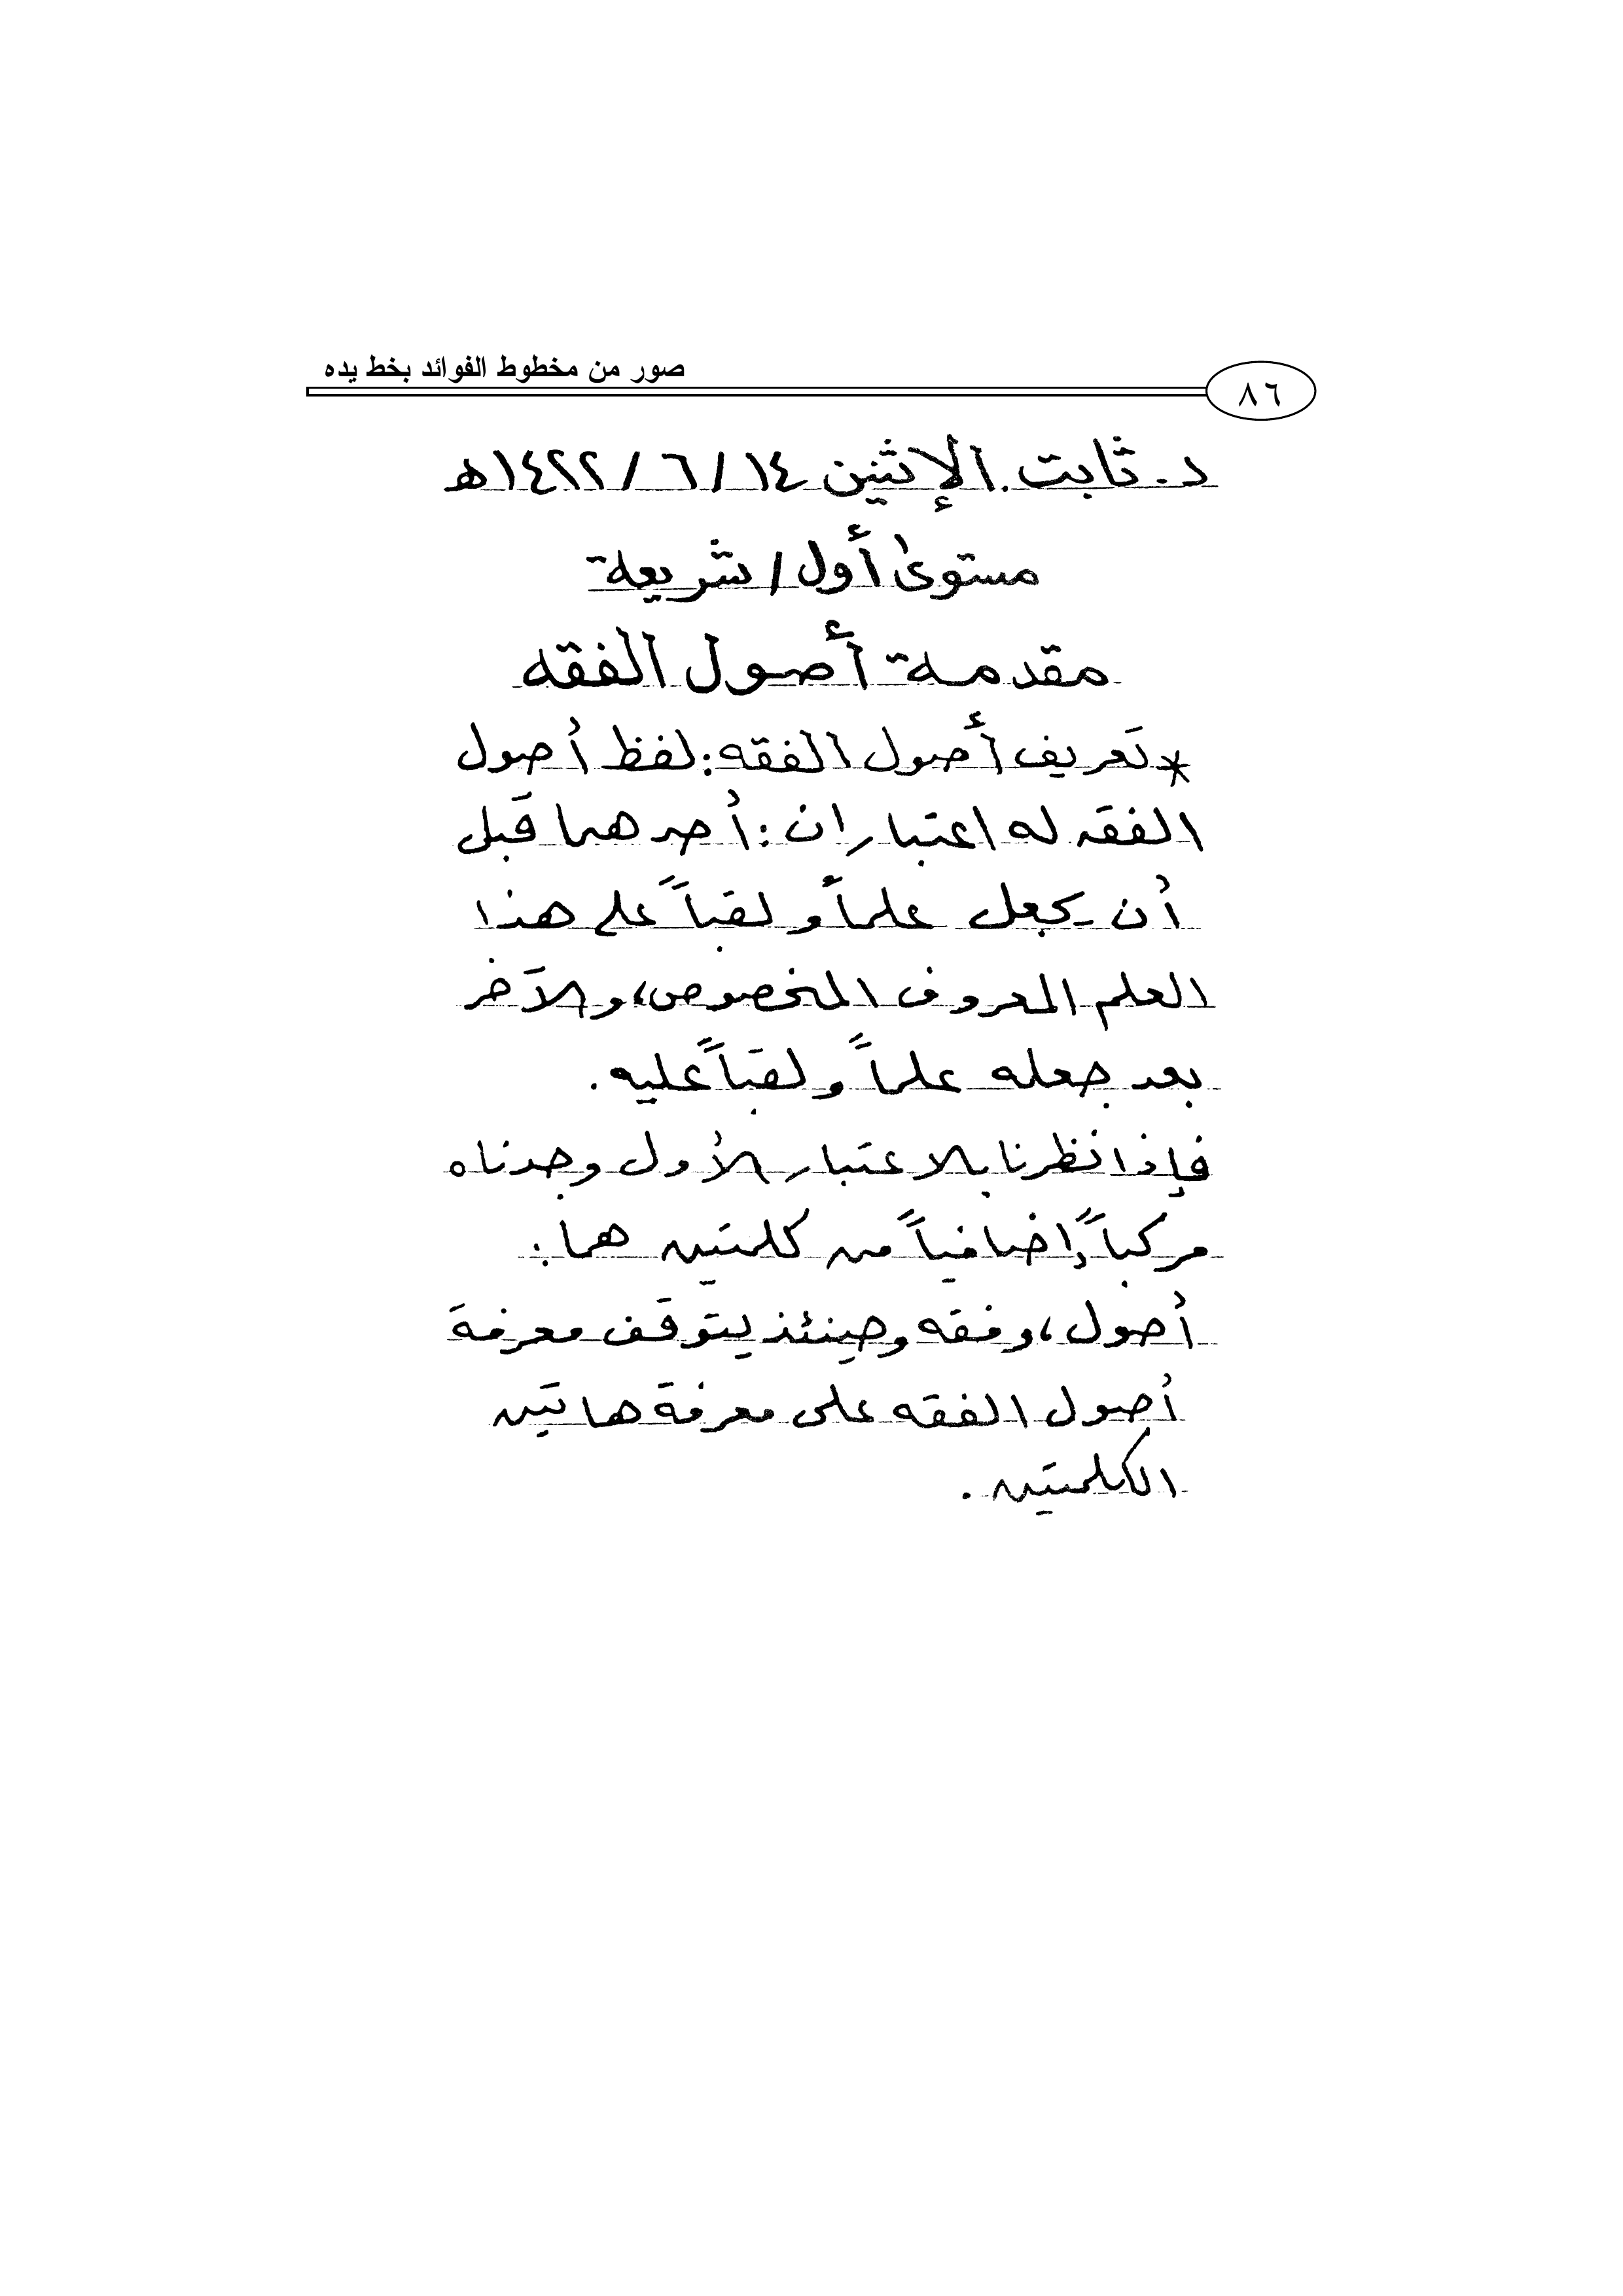 صور من مخطوط الفوائد بخط يده
٨٦
د. ثابت. الإثنين ١٤ / ٦ / ١٤٢٢هـ
مستوى أول / شريعة
مقدمة أصول الفقه
* تعريف أصول الفقه: لفظ أصول
الفقه له اعتباران: أحدهما قبل
أن يجعل علماً و لقباً على هذا
العلم المعروف المخصوص، والآخر
بعد جعله علماً ولقباً عليه.
فإذا نظرنا بالاعتبار الأول وجدناه
مركباً إضافياً من كلمتين هما:
أصول، وفقه وحينئذ يتوقف معرفة
أصول الفقه على معرفة هاتين
الكلمتين.